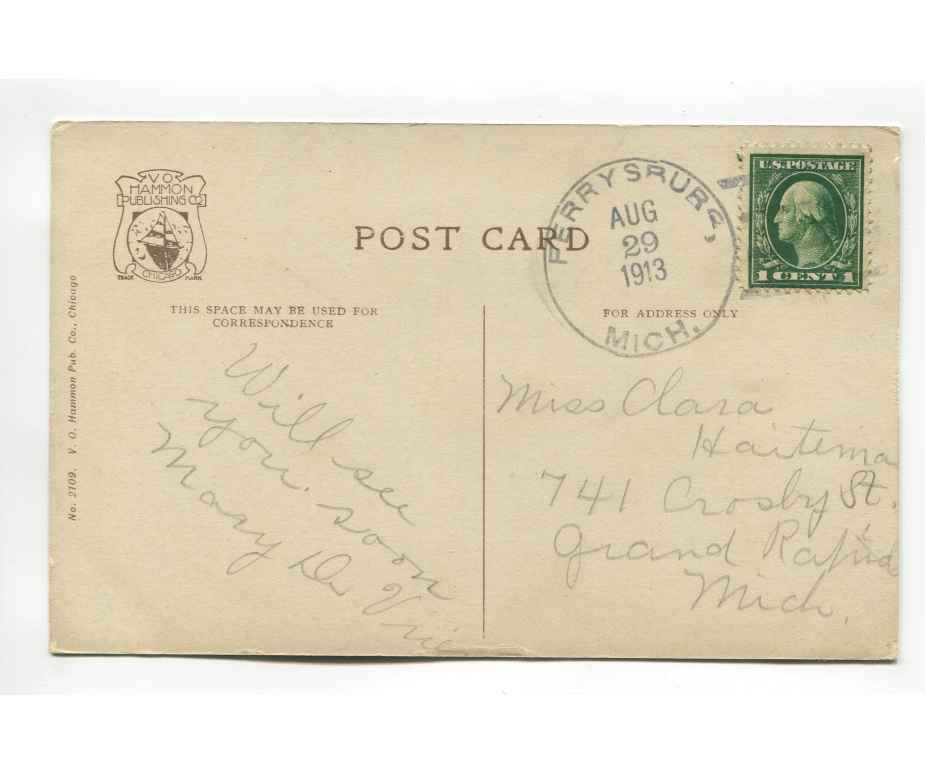 V O
HAMMON
PUBLISHING CO
CHICAGO
TRADE MARK
POST CARD
THIS SPACE MAY BE USED FOR
CORRESPONDENCE
FOR ADDRESS ONLY
No. 2109. V. O. Hammon Pub. Co., Chicago
FERRYSBURG,
AUG
29
1913
MICH.
U.S. POSTAGE
1 CENT 1
Will see
you soon
Mary De Vrie
Miss Clara
Haitema
741 Crosby St.
Grand Rapids
Mich.